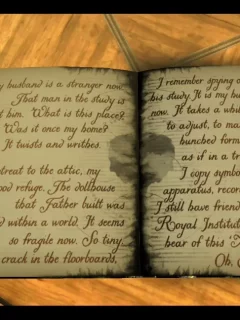 husband is a stranger now.
That man in the study is
him. What is this place?
Was it once my home?
It twists and writhes.
treat to the attic, my
refuge. The dollhouse
that Father built was
within a world. It seems
so fragile now. So tiny...
crack in the floorboards,
I remember spying o
his study. It is my bu
now. It takes a whi
to adjust, to ma
bunched form,
as if in a tr
I copy symbol
apparatus, recor
I still have friend
Royal Institu
hear of this
Oh,